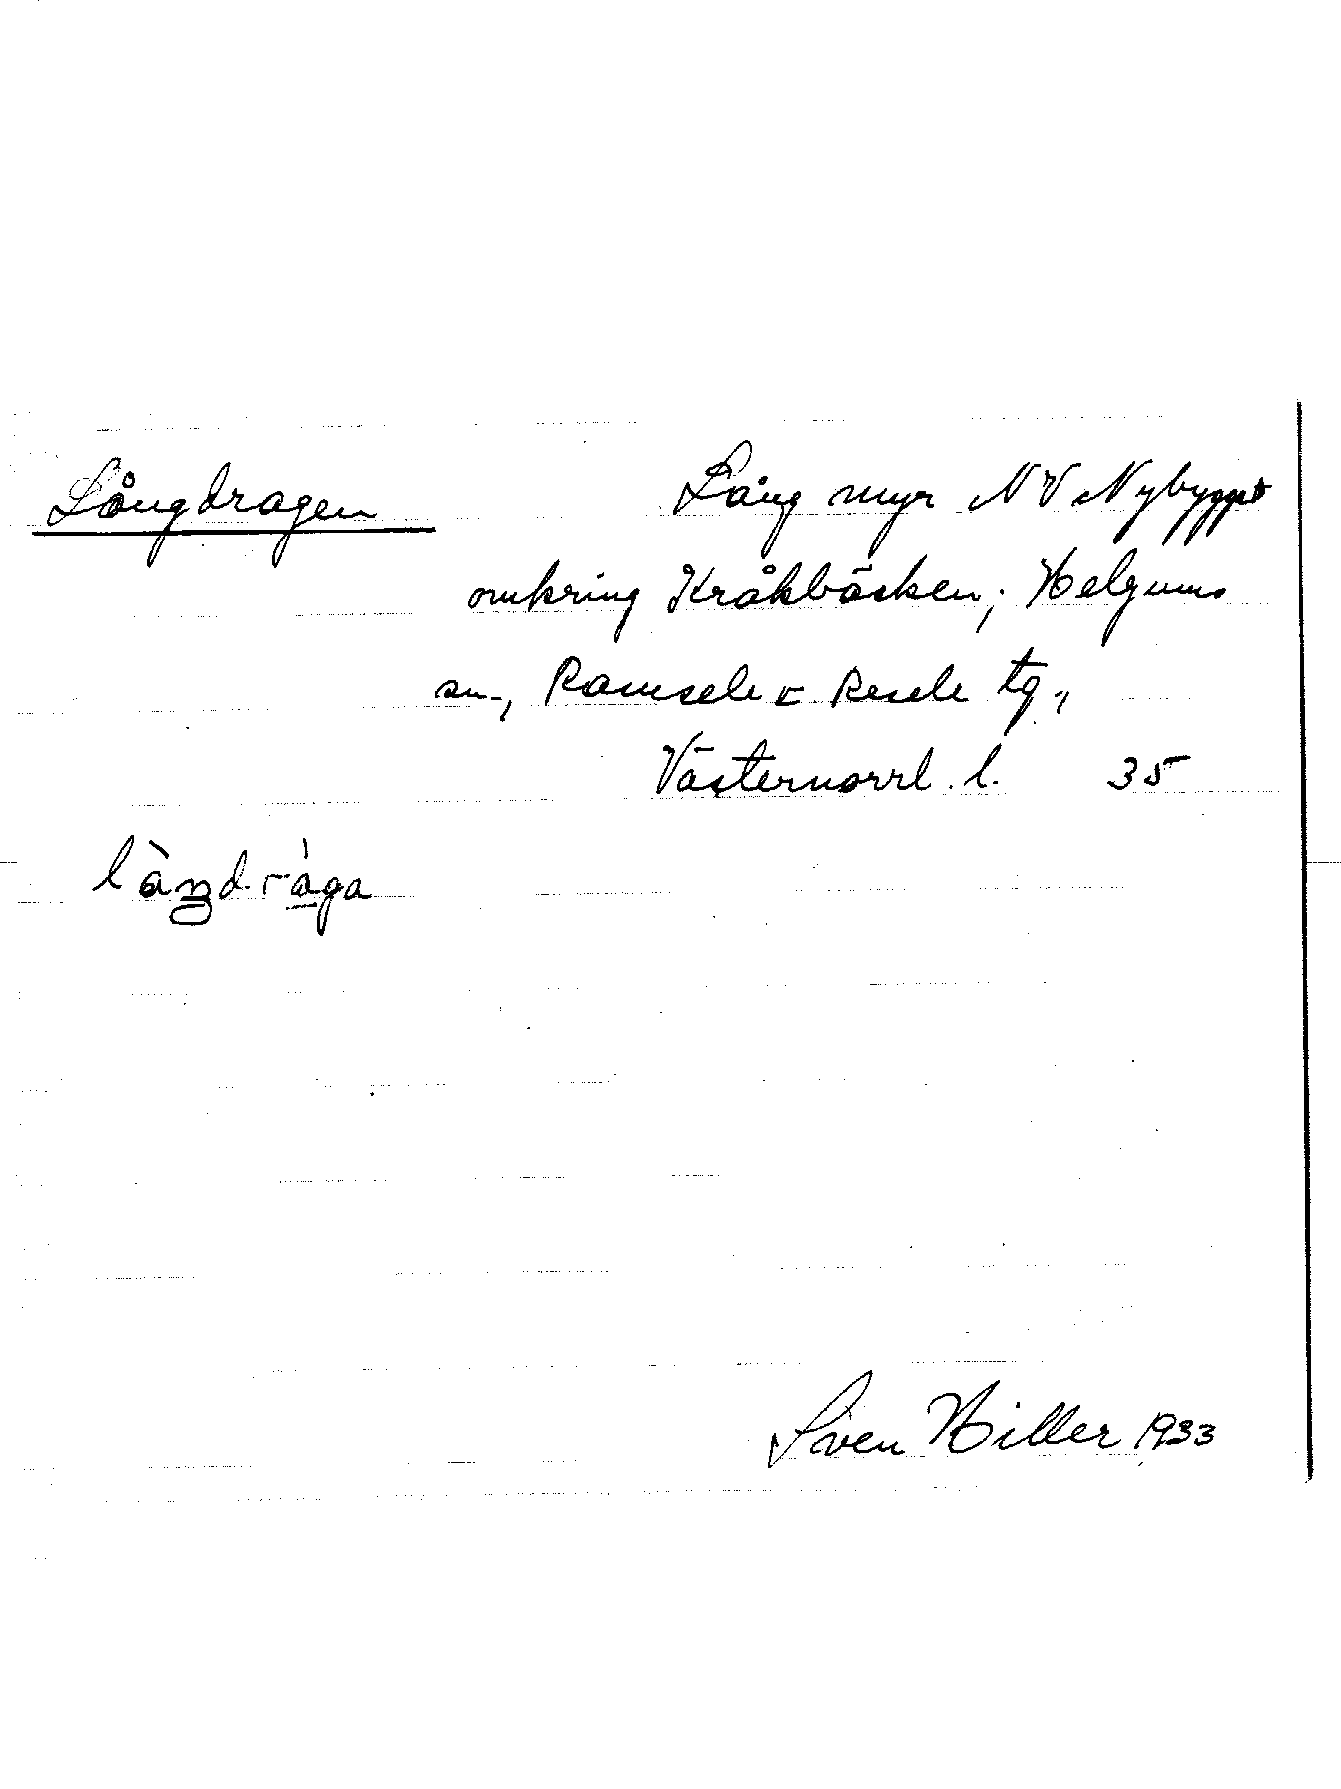 Långdragen Lång myr NV Nybygget
omkring Kråkbäcken; Helgums
sn., Ramsele o Resele tg.,
Västernorrl. l. 35
làŋdràga
Sven Hiller 1933